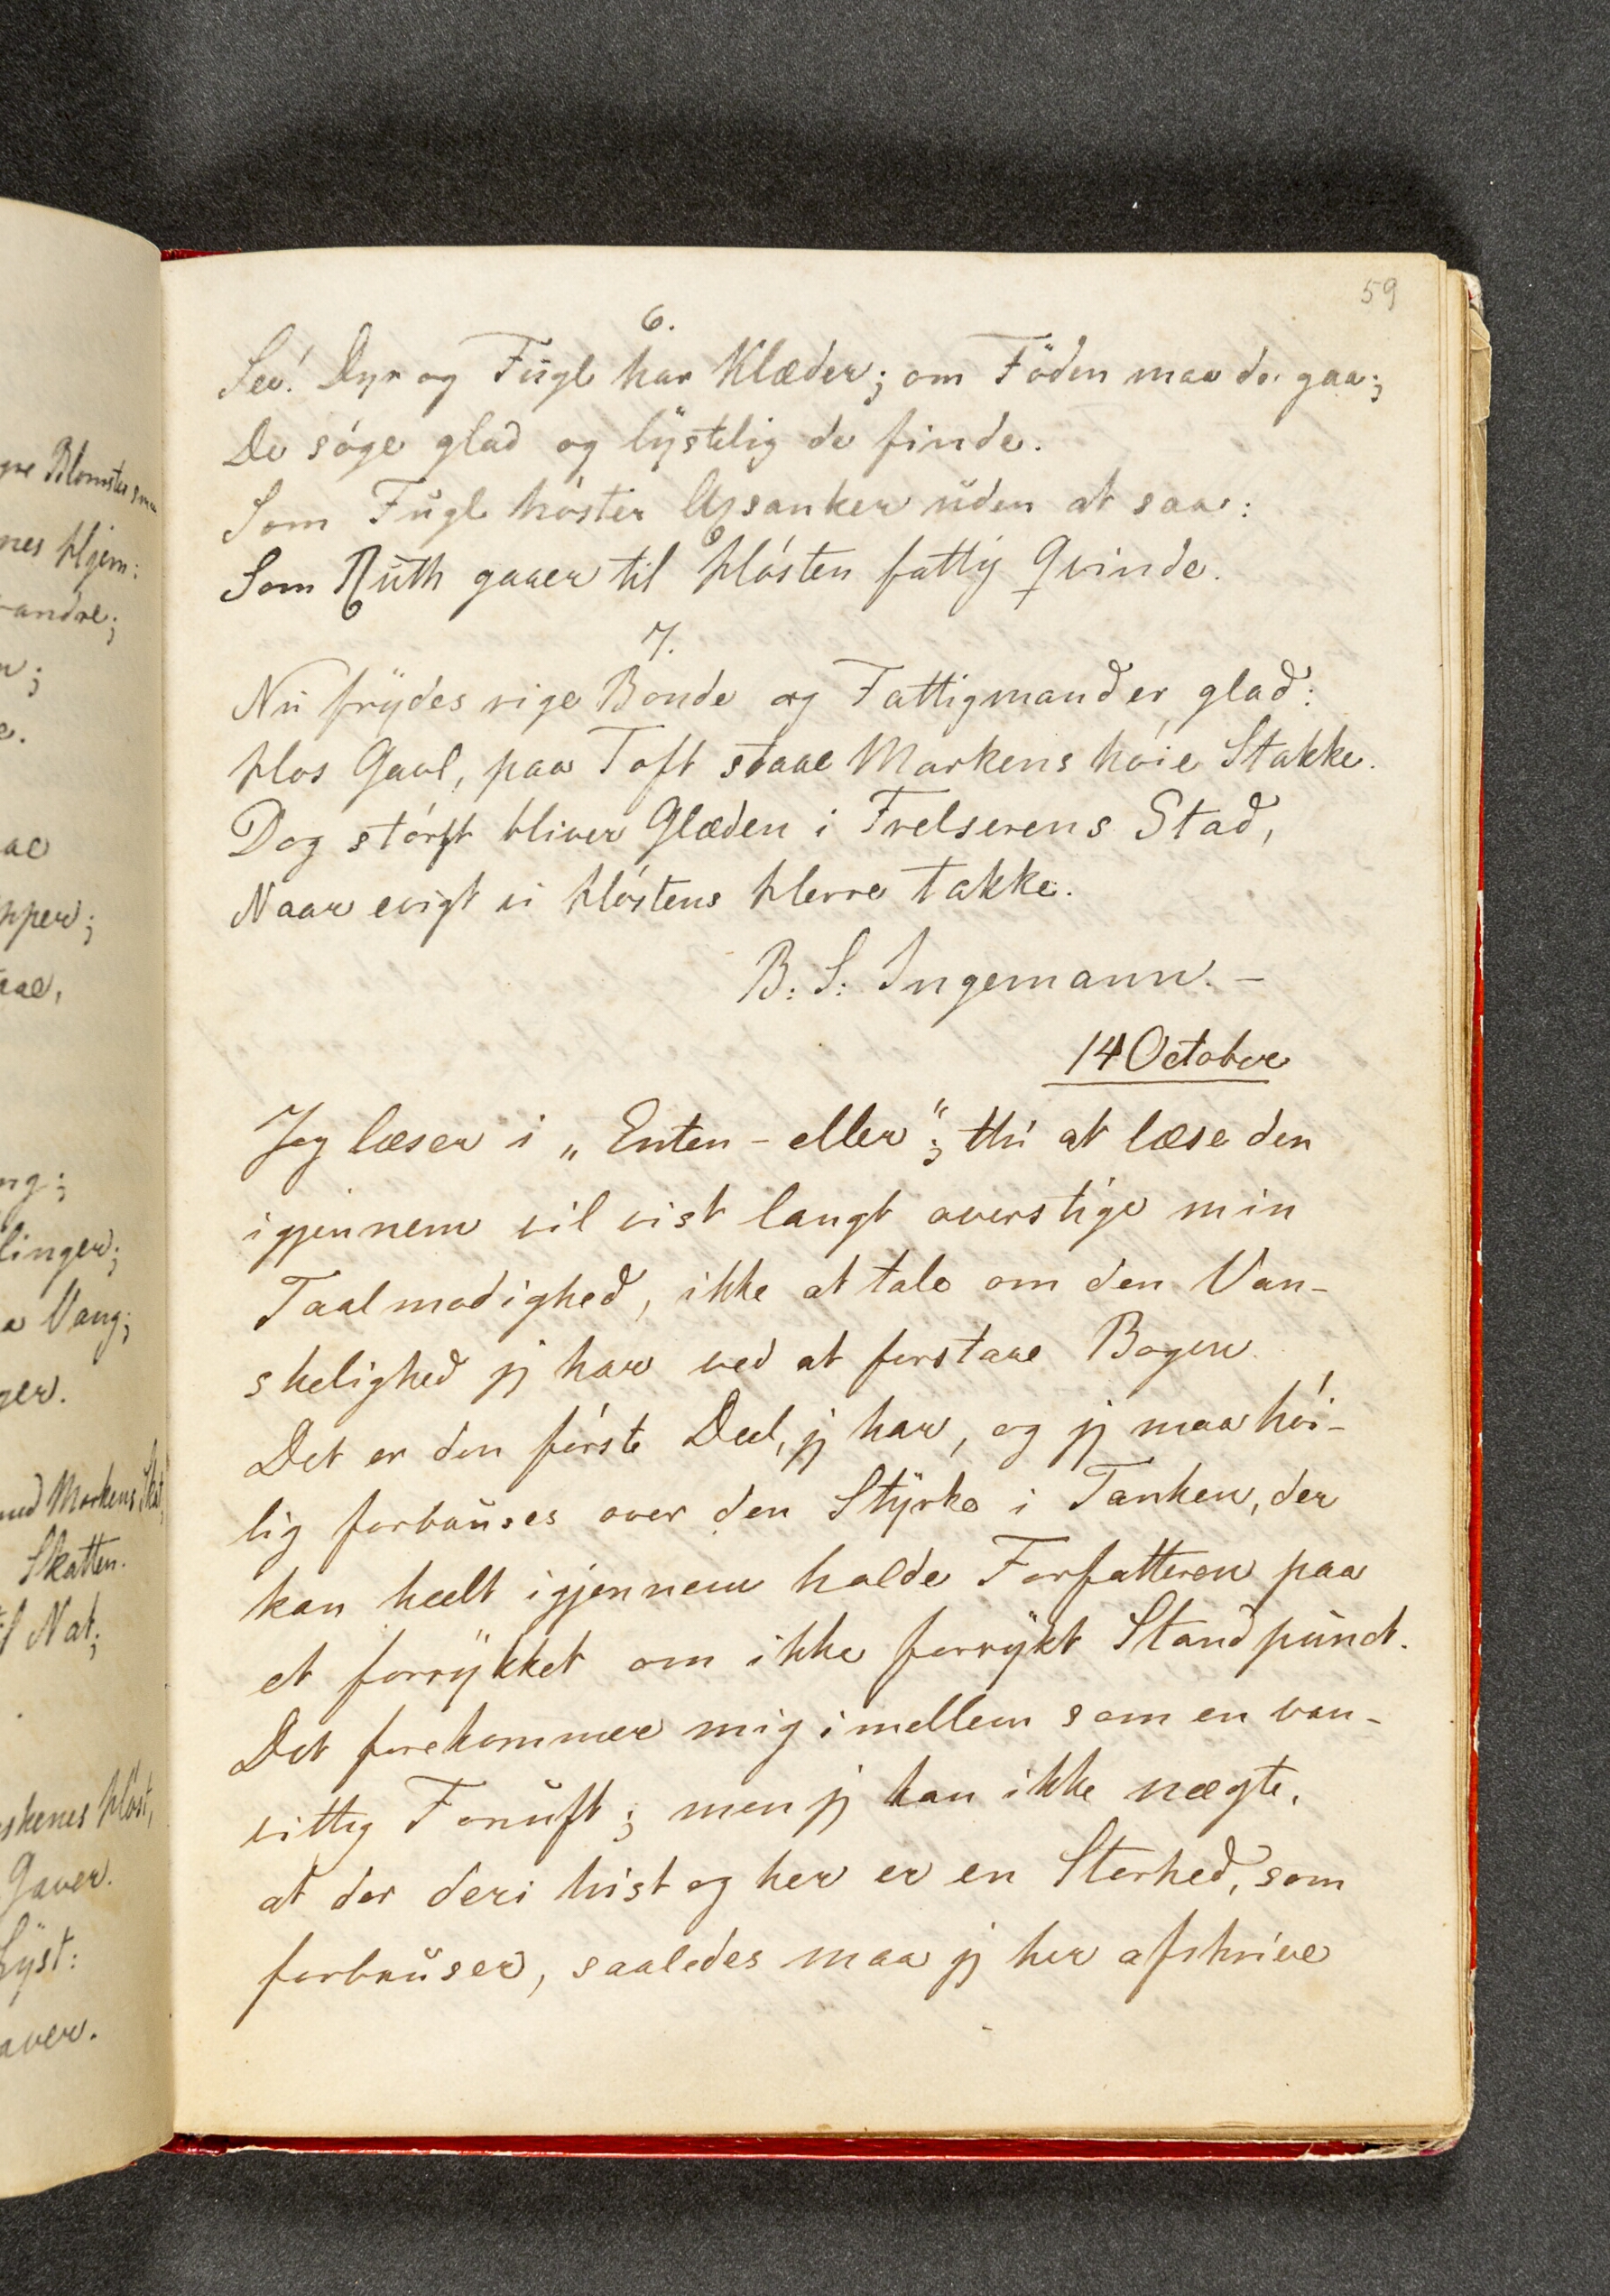 59
6.
See! Dyr og Fugle har Klæder; om Föden maa de gaa;
De söge glad og lystelig de finde.
Som Fugle höster Axsanker uden at saae:
Som Ruth gaaer til Hösten fattig Qvinde.
7.
Nu frydes rige Bonde og Fattigmand er glad:
Hos Gavl, paa Toft staae Markens höie Stakke.
Dog störst bliver Glæden i Frelserens Stad,
Naar evigt vi Höstens Herre takke.
B: S: Ingemann. –
14 October
Jeg læser i „Enten – eller“; thi at læse den
igjennem vil vist langt overstige min
Taalmodighed, ikke at tale om den Van-
skelighed jeg har ved at forstaae Bogen.
Det er den förste Deel, jeg har, og jeg maa höi-
lig forbauses over den Styrke i Tanken, der
kan heelt igjennem holde Forfatteren paa
et forrykket om ikke forrykt Standpunct.
Det forekommer mig imellem som en van-
vittig Fornuft; men jeg kan ikke nægte,
at der deri hist og her er en Storhed, som
forbauser, saaledes maa jeg her afskrive
nes Hjem:
andre;
pper;
linger;
Vang;
med Markens Skat,
Skatten.
Nat;
Höst,
Gaver.
Lyst: